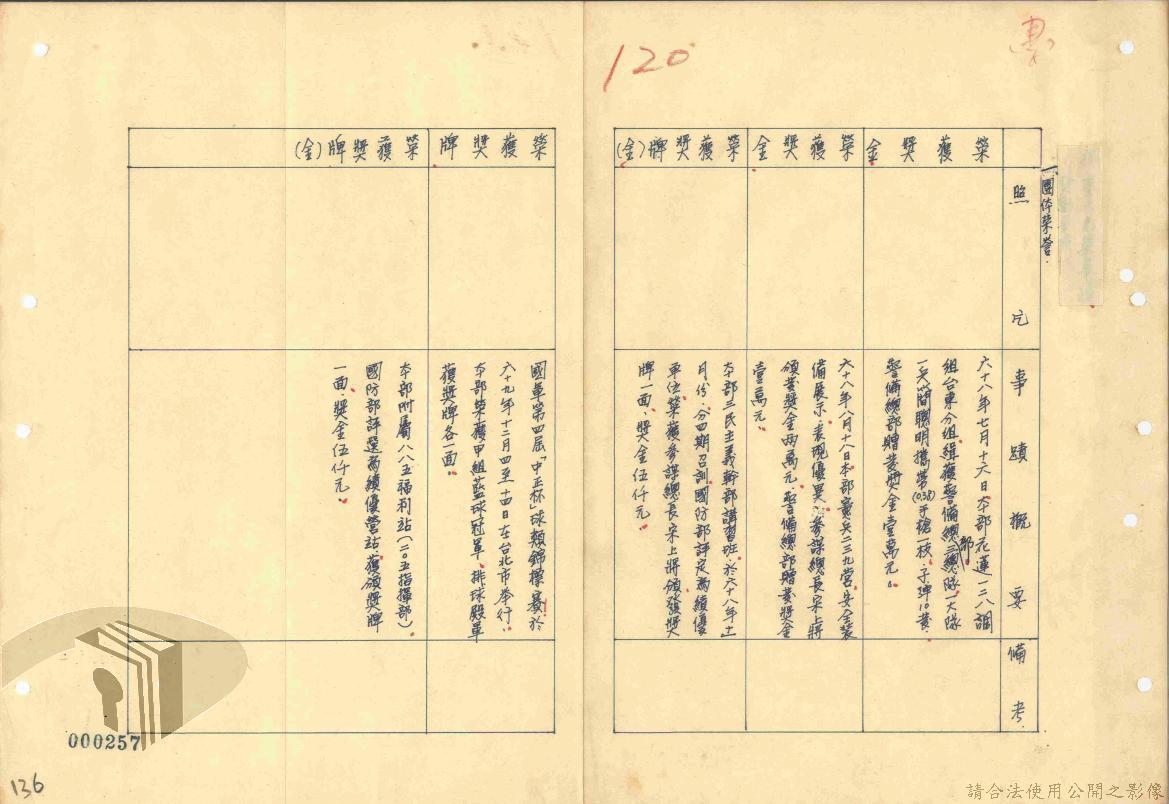 120
一、團体榮譽.
照片
事蹟概要
備考
榮獲獎金
六十八年七月十六日本部花蓮一二八調
組台東分組緝獲警備總部三總隊一大隊
一兵簡聰明攜帶(0.38)手槍一枝、子彈10發、
警備總部贈發獎金壹萬元。
榮獲獎金
六十八年八月十八日本部憲兵二三九營安全裝
備展示、表現優異、參謀總長宋上將
頒發獎金兩萬元、警備總部贈發獎金
壹萬元。
榮獲獎牌(金)
本部三民主義幹部講習班、於六十八年十一
月份、分四期召訓國防部評定為績優
單位榮獲參謀總長宋上將頒發獎
牌一面、獎金伍仟元。
榮獲獎牌
國軍第四屆「中正杯」球類錦標賽於
六十九年十二月四至十四日在台北市舉行、
本部榮獲甲組籃球冠軍、排球殿軍
獲獎牌各一面。
榮獲獎牌(金)
本部附屬八八五福利站(二0五指揮部)
國防部評選為績優營站、獲頒獎牌
一面、獎金伍仟元。
000257
136
請合法使用公開之影像